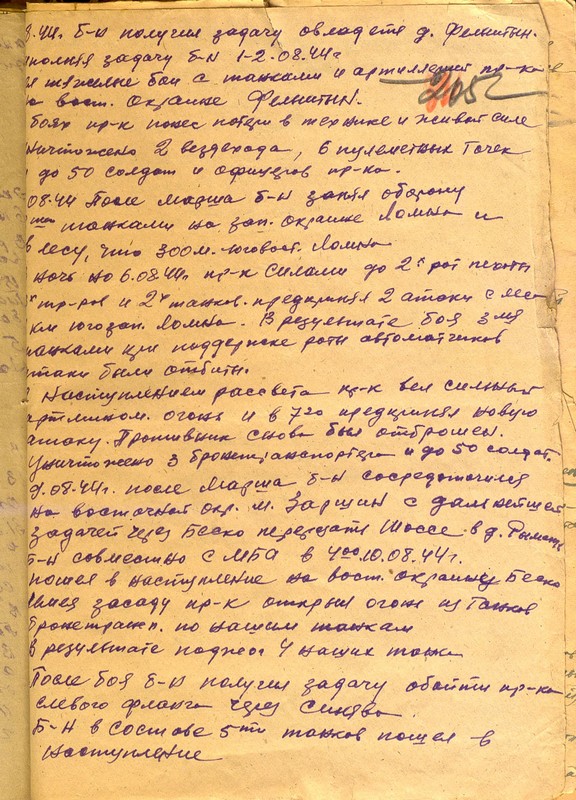 8.44г. б-н получил задачу овладеть д. Фельштын.
полняя задачу б-н 1-2.08.44г
л тяжелые бои с танками и артиллерией пр-ка
205
вост. окраине Фельштын.
боях пр-к понес потери в технике и живой силе
ничтожено 2 вездехода, 6 пулеметных точек
до 50 солдат и офицеров пр-ка.
08.44 После марша б-н занял оборону
танками на зап. окраине Ломна и
в лесу, что 300 м. юговост. Ломна
ночь на 6.08.44г пр-к силами до 2х рот пехоты
х тр-ров и 2х танков. предпринял 2 атаки с
югозап. Ломна. В результате боя 3мя
танками при поддержке роты автоматчиков
атаки были отбиты.
Наступлением рассвета пр-к вел сильный
артмином. огонь и в 7 00 предпринял новую
атаку. Противник снова был отброшен.
Уничтожено 3 бронетранспортера и до 50 солдат.
9.08.44г. после марша б-н сосредоточился
на восточной окр. м. Заршин с дальнейшей
задачей через Беско перерезать шоссе в д.
Б-н совместно с МБА в 4 00 10.08.44г.
пошел в наступление на вост. окраину Беско
Имея засаду пр-к открыл огонь из танков
бронетрансп. по нашим танкам
в результате поджег 4 наших танка
После боя б-н получил задачу обойти пр-ка
с левого фланга через
Б-н в составе 5ти танков пошел в
наступление